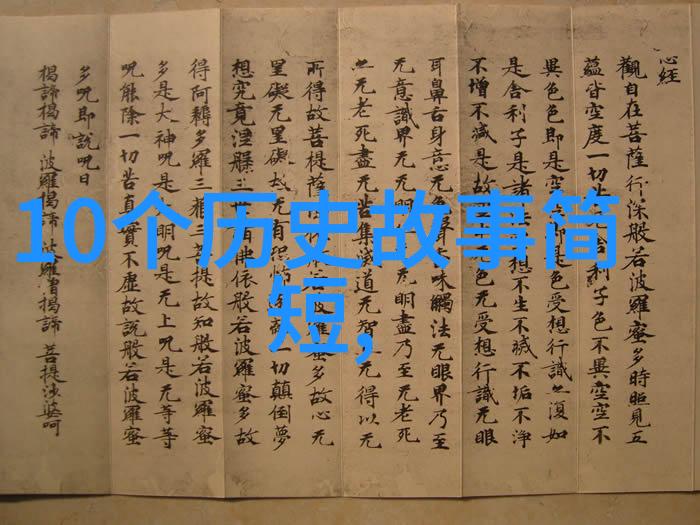 10个历史故事简
短,
心经
觀自在菩薩行深般若波羅蜜多時照見五
蘊皆空度一切利子色不異空空不
異色色即是空是色受想行識亦復如
是舍利子是諸想不生不滅不垢不淨
不增不減是故色无受想行識无眼
耳鼻舌身意无色聲味觸法无眼界乃至
无意識界无无明无明盡乃至无老死
亦无老死盡无苦集滅道无智无得以无
所得故菩提薩般若波羅蜜多故心无
罣礙无罣礙故无有恐怖一切顛倒夢
想究竟涅槃三世佛依般若波羅蜜多故
得阿耨多羅三藐三菩提故知般若波羅蜜
多是大神呪是明呪是无上呪是无等等
呪能除一切苦真實不虛故說般若波羅蜜
多呪即說呪曰
揭諦揭諦 波羅揭諦 波羅僧揭諦 菩提沙婆呵